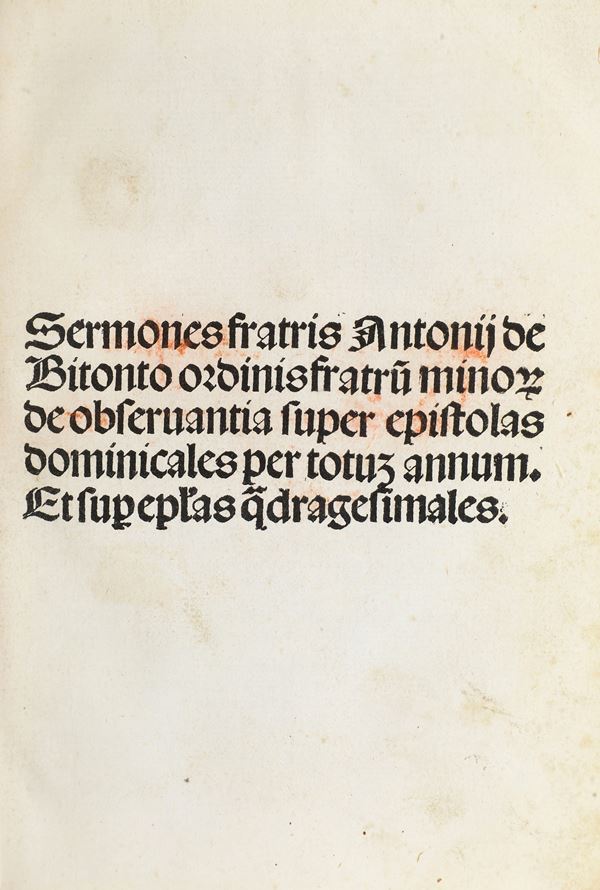 Sermones fratris Antonij de
Bitonto ordinis fratrū minoꝝ
de obſeruantia ſuper epiſtolas
dominicales per totuꝫ annum.
Et ſuꝑ epl̄as q̄drageſimales.